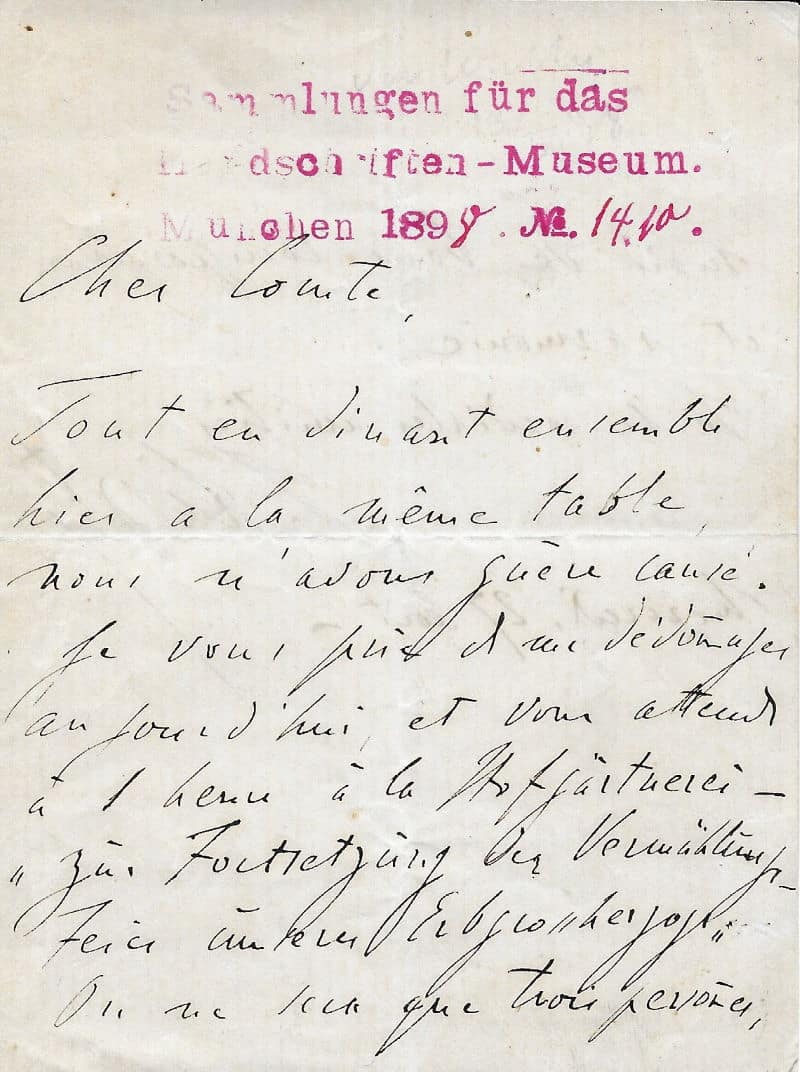 Sammlungen für das
Handschriften-Museum.
München 1898. No. 1410.
Cher Comte,
Tout en dinant ensemble
hier a la même table,
nous n'avons guère causé.
Je vous prie de me dédom̄ager
aujourd'hui, et vous attends
à 1 heure à la Hofgärtnerei –
„zur Fortsetzung der Vermählungs-
Feier unseres Erbgrossherzogs„
On ne sera que trois person̄es,